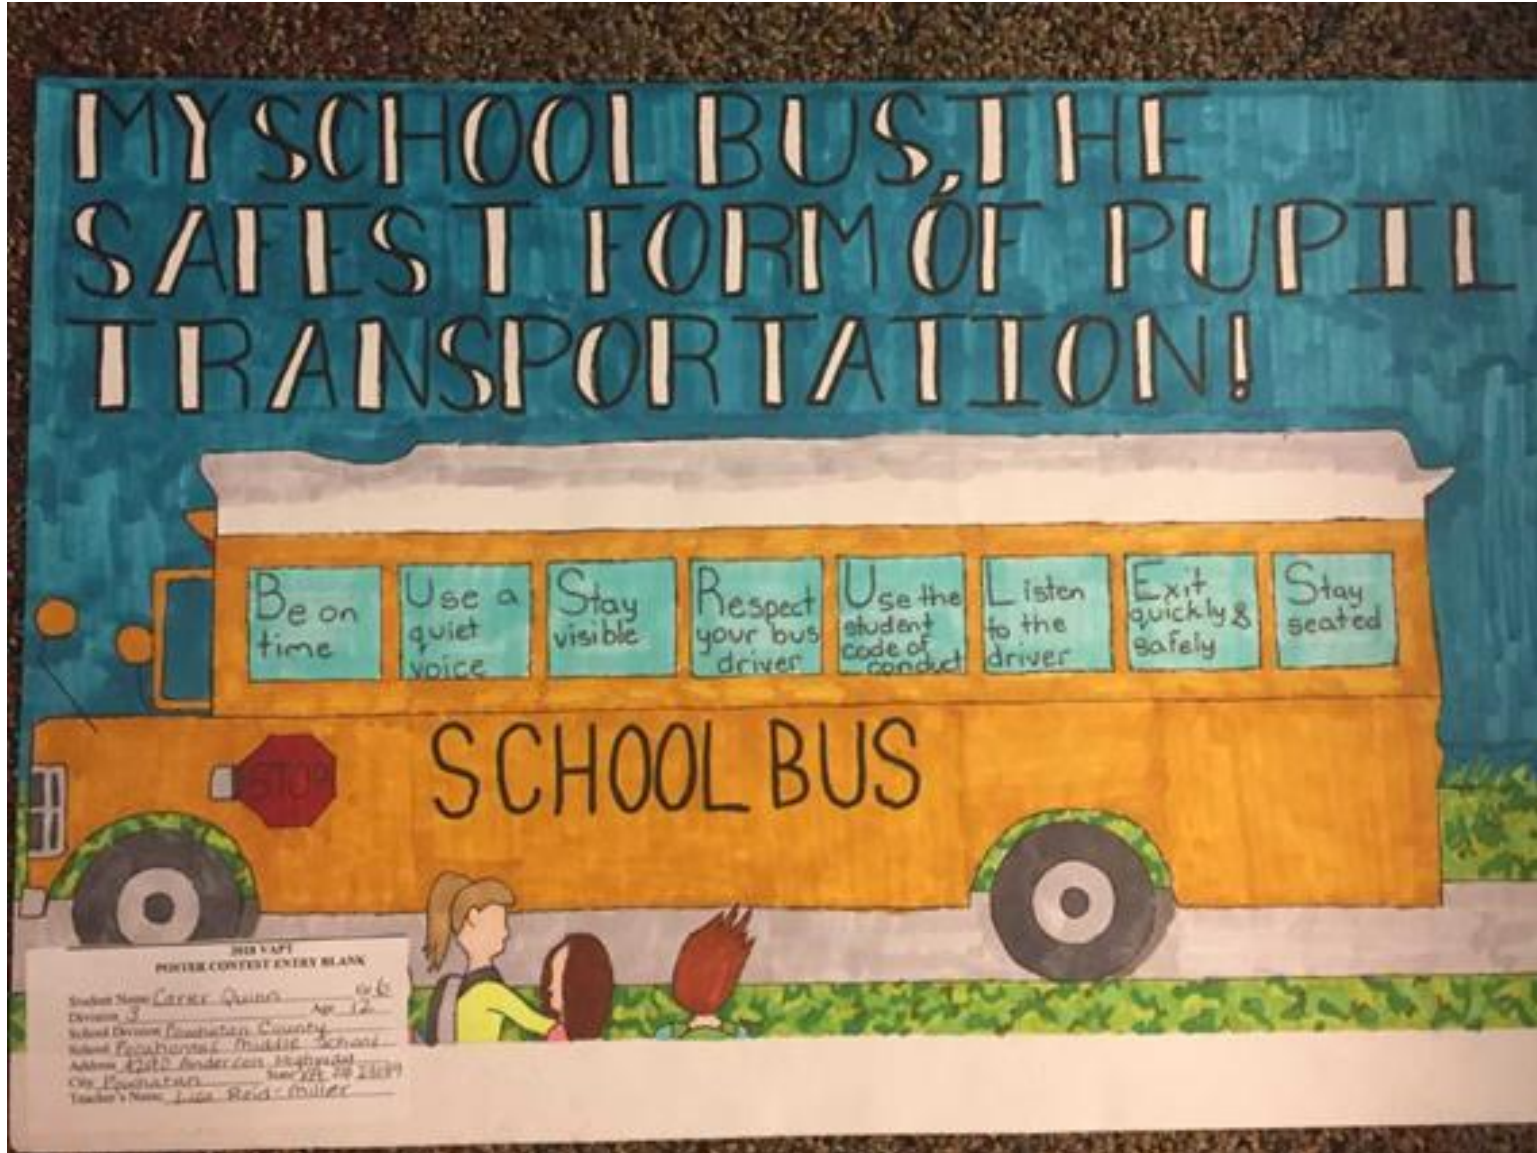 MY SCHOOL BUS, THE
SAFEST FORM OF PUPIL
TRANSPORTATION!
Be on
time
Use a
quiet
voice
Stay
visible
Respect
your bus
driver
Use the
student
code of
conduct
Listen
to the
driver
Exit
quickly &
safely
Stay
seated
STOP
SCHOOL BUS
2018 VAPT
POSTER CONTEST ENTRY BLANK
Student Name Carter Quinn Gr 6
Division 3 Age 12
School Division Powhatan County
School Pocahontas Middle School
Address Anderson Highway
City Powhatan State VA Zip 23139
Teacher's Name Lisa Reid-Miller